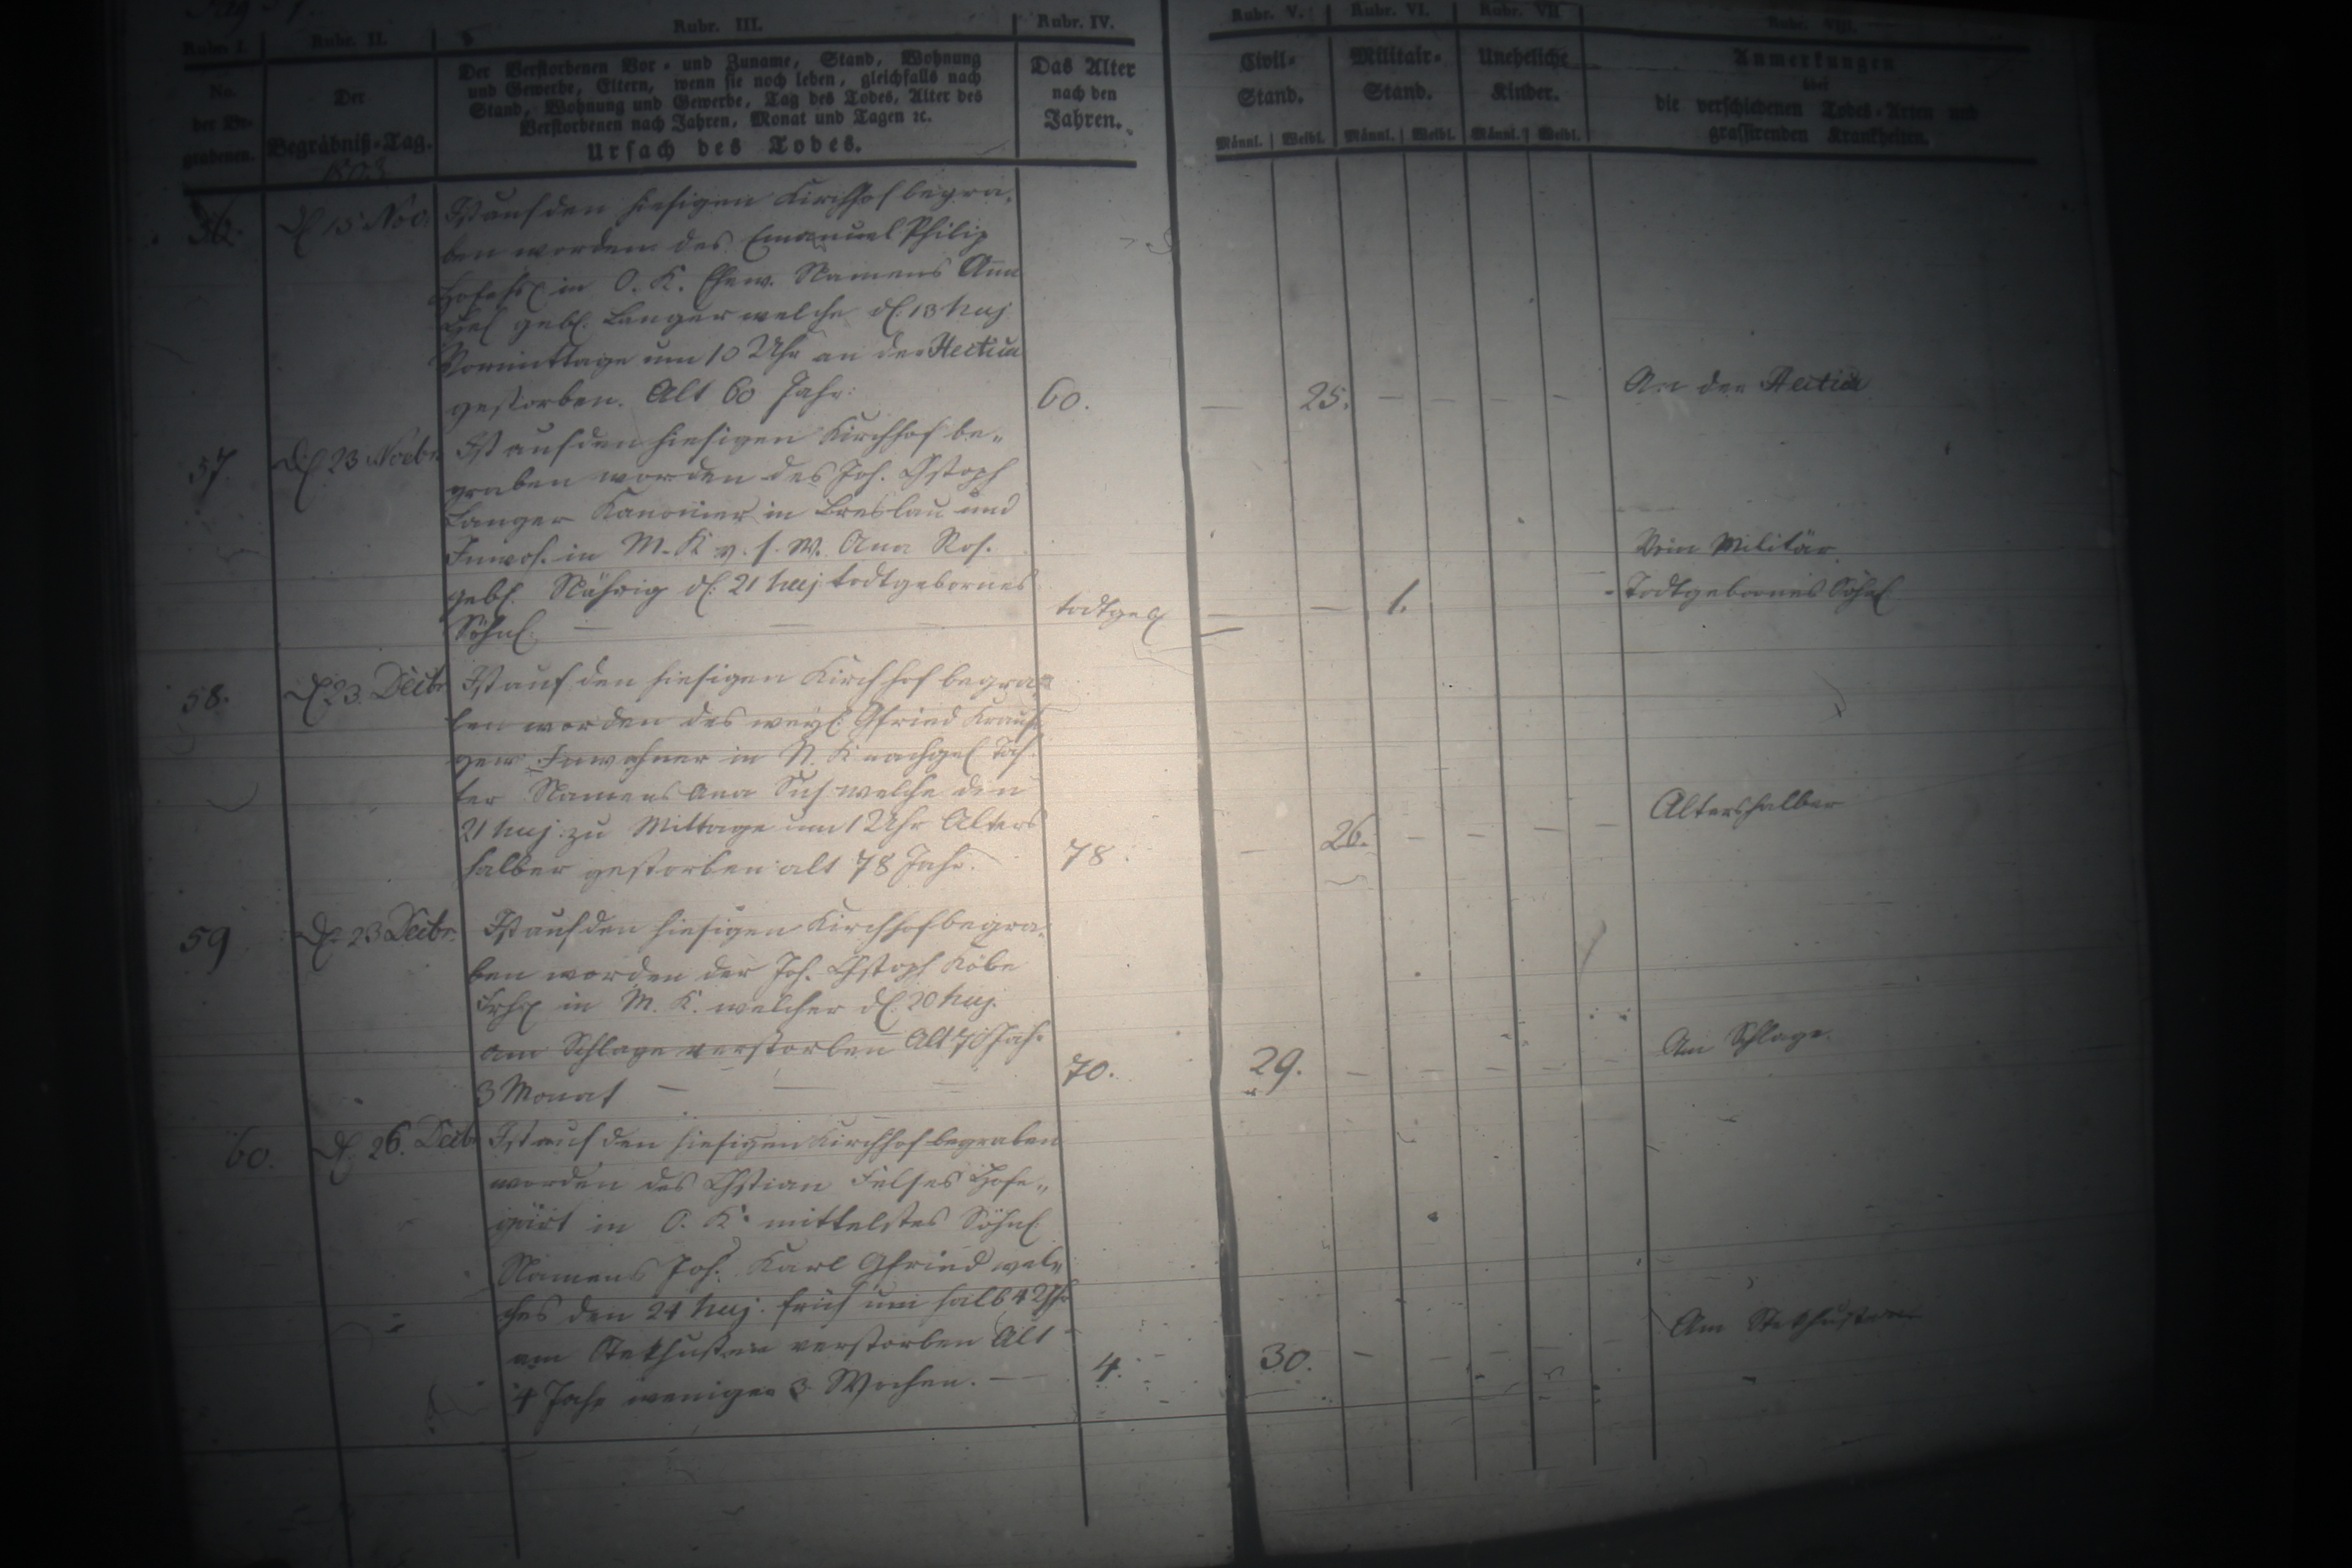 Rubr. I. Rubr. II. Rubr. III. Rubr. IV. Rubr. V. Rubr. VI. Rubr. VII Rubr. VIII.
No.
der Be-
grabenen.
Der
Begräbniß-Tag.
1803
Der Verstorbenen Vor- und Zuname, Stand, Wohnung
und Gewerbe, Eltern, wenn sie noch leben, gleichfalls nach
Stand, Wohnung und Gewerbe, Tag des Todes, Alter des
Verstorbenen nach Jahren, Monat und Tagen ꝛc.
Ursach des Todes.
Das Alter
nach den
Jahren.
Civil-
Stand.
Männl. | Weibl.
Militair-
Stand.
Männl. | Weibl.
Uneheliche
Kinder.
Männl. | Weibl.
Anmerkungen
über
die verschiedenen Todes-Arten und
grassirenden Krankheiten.
56. d. 15 Nov.
Ist auf den hiesigen Kirchhof begra-
ben worden des Emanuel Philip
in O. K. Ehew. Namens Ann
geb. Langer welche d. 13 huj
Vormittage um 10 Uhr an der Hectica
gestorben. Alt 60 Jahr.
60. — 25. — — — — An der Hectica
57. d. 23 Novbr
Ist auf den hiesigen Kirchhof be-
graben worden des Joh. Chstoph
Langer Kanonier in Breslau und
Inwoh. in M. K v. s. W. Ann Ros.
geb. Nährig d. 21 huj todtgebornes
Söhnl. — — —
todtgeb — — 1. —
Vom Militär
Todtgebornes Söhnl
58. d. 23 Decbr
Ist auf den hiesigen Kirchhof begra-
ben worden des weyl. Gfried
Inwohner in N. K nachgel Toch
ter Namens Anna Sus welche den
21 huj. zu Mittage um 1 Uhr Alters
halber gestorben alt 78 Jahr.
78. — 26. — — — — Altershalber
59 d. 23 Decbr.
Ist auf den hiesigen Kirchhof begra-
ben worden der Joh. Chstoph Köbe
in M. K. welcher d. 20 huj.
am Schlage verstorben Alt 70 Jah.
3 Monat — — —
70. 29. — — — — — Am Schlage.
60. d. 26. Decbr
Ist auf den hiesigen Kirchhof begraben
worden des Chstian Felses Hofe-
in O. K. mittelstes Söhnl
Namens Joh. Karl Gfried wel-
ches den 24 huj. früh um halb 4 Uhr
am Stekhusten verstorben Alt
4 Jahr weniger 3 Wochen. —
4. 30. — — — — — Am Stekhusten